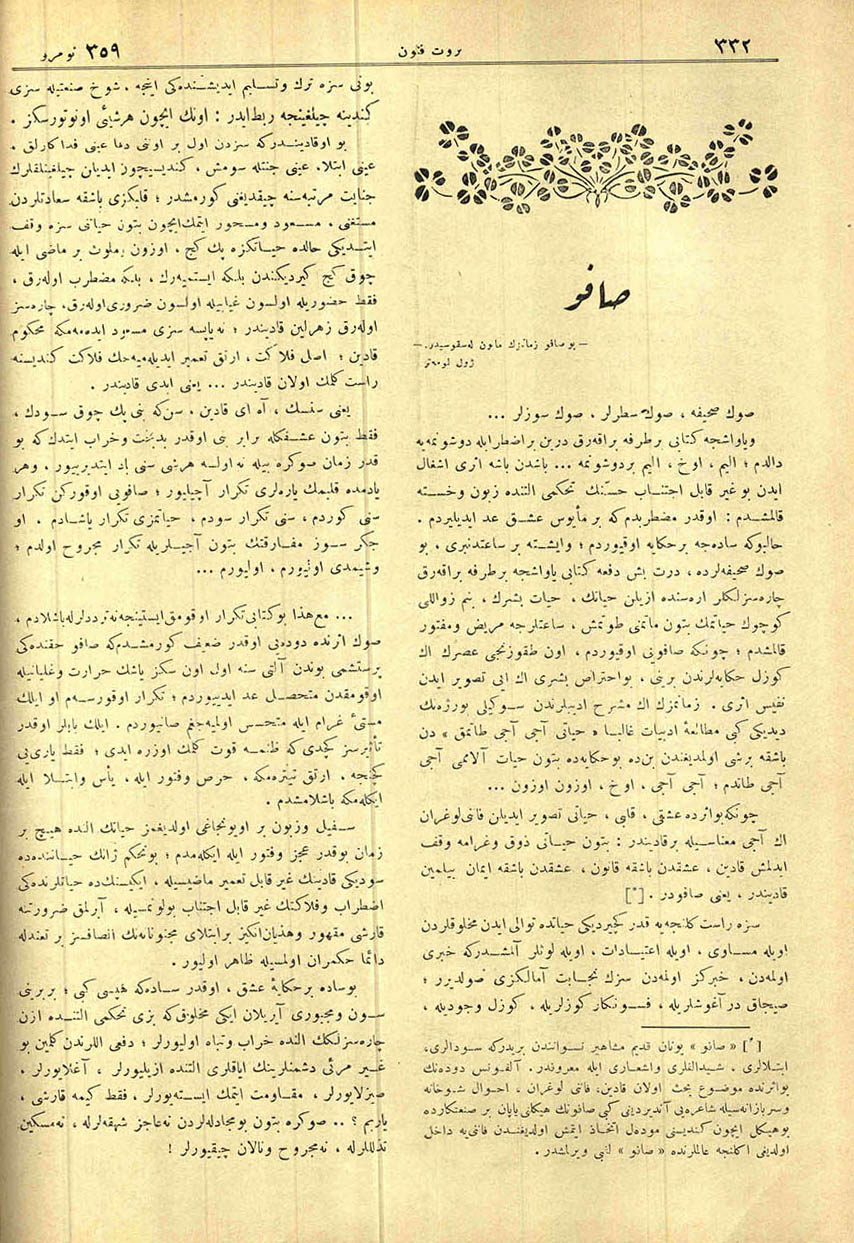 ٣٣٢
ثروت فنون
نومرو ٣٥٩
صافو
— بو صافو زمانزك مانون له‌سقوسیدر. —
ژول لومه‌تر
صوك صحیفه ، صوك سطرلر ، صوك سوزلر ...
ویاواشجه كتابی بر طرفه براقه‌رق درین بر اضطرابله دوشونمه‌یه
دالدم ؛ الیم ، اوخ ، الیم بر دوشونمه ... باشدن باشه اثری اشغال
ایدن بو غیر قابل اجتناب حسّك تحكمی التنده زبون وخسته
قالمشدم : اوقدر مضطربدم كه بر مأیوس عشق عد ایدیلیردم .
حالبوكه ساده‌جه بر حكایه اوقیوردم ؛ وایشته بر ساعتدنبری ، بو
صوك صحیفه‌لرده ، درت بش دفعه كتابی یاواشجه بر طرفه براقه‌رق
چاره‌سزلكلر اره‌سنده ازیلن حیاتك ، حیات بشرك ، بنم زواللی
كوچوك حیاتمك بتون ماتمنی طوتمش ، ساعتلرجه مریض ومفتور
قالمشدم ؛ چونكه صافویی اوقیوردم ، اون طقوزنجی عصرك اك
كوزل حكایه‌لرندن برینی ، بو احتراص بشری اك ایی تصویر ایدن
نفیس اثری . زمانمزك اك منشرح ادیبلرندن سوكیلی بورژه‌نك
دیدیكی كبی مطالعهٔ ادبیات غالبا « حیاتی آجی آجی طاتمق » دن
باشقه برشی اولمدیغندن بن‌ده بو حكایه‌ده بتون حیات آلامنی آجی
آجی طاتدم ؛ آجی آجی ، اوخ ، اوزون اوزون ...
چونكه بو اثرده عشقی ، قلبی ، حیاتی تصویر ایدیلن فانی لوغران
اك آجی معناسیله بر قادیندر : بتون حیاتی ذوق وغرامه وقف
ایدلمش قادین ، عشقدن باشقه قانون ، عشقدن باشقه ایمان بیلمین
قادیندر ، یعنی صافودر . [*]
سزه راست كلنجه‌یه قدر كچیردیكی حیاتده توالی ایدن مخلوقلردن
اویله مساوی ، اویله اعتیادات ، اویله لوثلر آلمشدركه خبری
اولمه‌دن ، خبركز اولمه‌دن سزك نجابت آمالكزی صولدیرر ؛
صیجاق در آغوشلریله ، فسونكار كوزلریله ، كوزل وجودیله ،
[*] « صافو » یونان قدیم مشاهیر نسوانندن بریدركه سودالری،
ابتلالری . شیدالقلری واشعاری ایله معروفدر. آلفونس دوده‌نك
بو اثرنده موضوع بحث اولان قادین، فانی لوغران ، احوال شوخانه
وسربازانه‌سیله شاعره‌یی آندیردینی كبی صافونك هیكلنی یاپان بر صنعتكارده
بوهیكل ایچون كندیسنی مودل اتخاذ ایتمش اولدیغندن فانی‌یه داخل
اولدیغی اكلنجه عالملرنده « صافو » لقبی ویرلمشدر .
بونی سزه ترك وتسلیم ایدیشنده‌كی اینجه ، شوخ صنعتیله سزی
كندینه چیلغینجه ربط ایدر : اونك ایچون هرشیئی اونوتورسكز .
بو اوقادیندركه سزدن اول بر اونی دها عینی فداكارلق ،
عینی ابتلا، عینی جنتله سومش ، كندیسیچون ایدیلن چیلغینلقلرك
جنایت مرتبه‌سنه چیقدیغنی كورمشدر ؛ قلبكزی باشقه سعادتلردن
مستغنی ، مسعود ومسحور ایتمك ایچون بتون حیاتنی سزه وقف
ایتدیكی حالده حیاتكزه پك كیج ، اوزون وملوث بر ماضی ایله
چوق كیج كیردیكندن بلكه ایستمیه‌رك ، بلكه مضطرب اوله‌رق ،
فقط حضوریله اولسون غیابیله اولسون ضروری اوله‌رق، چاره‌سز
اوله‌رق زهرلین قادیندر ؛ نه‌یاپسه سزی مسعود ایده‌مه‌مكه محكوم
قادین ؛ اصل فلاكت ، ارتق تعمیر ایدیله‌میه‌جك فلاكت كندیسنه
راست كلمك اولان قادیندر ... یعنی ابدی قادیندر .
یعنی سنسك ، آه ای قادین . سن كه بنی پك چوق سودك ،
فقط بتون عشقكله برابر بنی اوقدر بدبخت وخراب ایتدك كه بو
قدر زمان صوكره بیله نه اولسه هرشی سنی یاد ایتدیریور . وهر
یادمده قلبمك یاره‌لری تكرار آچیلیور ؛ صافویی اوقوركن تكرار
سنی كوردم ، سنی تكرار سودم ، حیاتمزی تكرار یاشادم . او
جكر سوز مفارقتك بتون آجیلریله تكرار مجروح اولدم ؛
وشیمدی اولیورم ، اولیورم ...
... مع‌هذا بو كتابی تكرار اوقومق ایستینجه نه ترددلرله باشلادم ،
صوك اثرنده دوده‌یی اوقدر ضعیف كورمشدم كه صافو حقنده‌كی
پرستشمی بوندن آلتی سنه اول اون سكز یاشك حرارت وغلیانیله
اوقومقدن متحصل عد ایدییوردم ؛ تكرار اوقورسه‌م او ایلك
مستیٔ غرام ایله متحسس اولمیه‌جغم صانیوردم . ایلك بابلر اوقدر
تأثیرسز كچدی كه ظنمه قوت كلمك اوزره ایدی ؛ فقط یاری‌یی
كچنجه ، ارتق تیتره‌مكه ، حرص وفتور ایله ، یأس وابتلا ایله
ایكله‌مكه باشلامشدم .
سفیل وزبون بر اویونجاغی اولدیغمز حیاتك النده هیچ بر
زمان بوقدر عجز وفتور ایله ایكله‌مدم ؛ بو محكم ژانك حیاتنده‌ده
سودیكی قادینك غیر قابل تعمیر ماضیسیله ، ایكیسنك‌ده حیاتلرنده‌كی
اضطراب وفلاكتك غیر قابل اجتناب بولونمسیله ، آیرلمق ضرورتنه
قارشی مقهور وهذیان‌انكیز بر ابتلای مجنونانه‌نك انصافسز بر تعندله
دائما حكمران اولمسیله ظاهر اولیور .
بو ساده بر حكایهٔ عشق ، اوقدر ساده كه هپسی كبی ؛ بربرینی
سون ومجبوری آیریلان ایكی مخلوق كه بزی تحكمی التنده ازن
چاره‌سزلكك النده خراب وتباه اولیورلر ؛ دفعی اللرندن كلمین بو
غیر مرئی دشمنلرینك ایاقلری التنده ازیلیورلر ، آغلایورلر .
صیزلایورلر ، مقاومت ایتمك ایسته‌یورلر . فقط كیمه قارشی ،
یاربم ؟ .. صوكره بتون بو مجادله‌لردن نه عاجز شهقه‌لرله ، نه مسكین
تذللرله ، نه مجروح ونالان چیقیورلر !